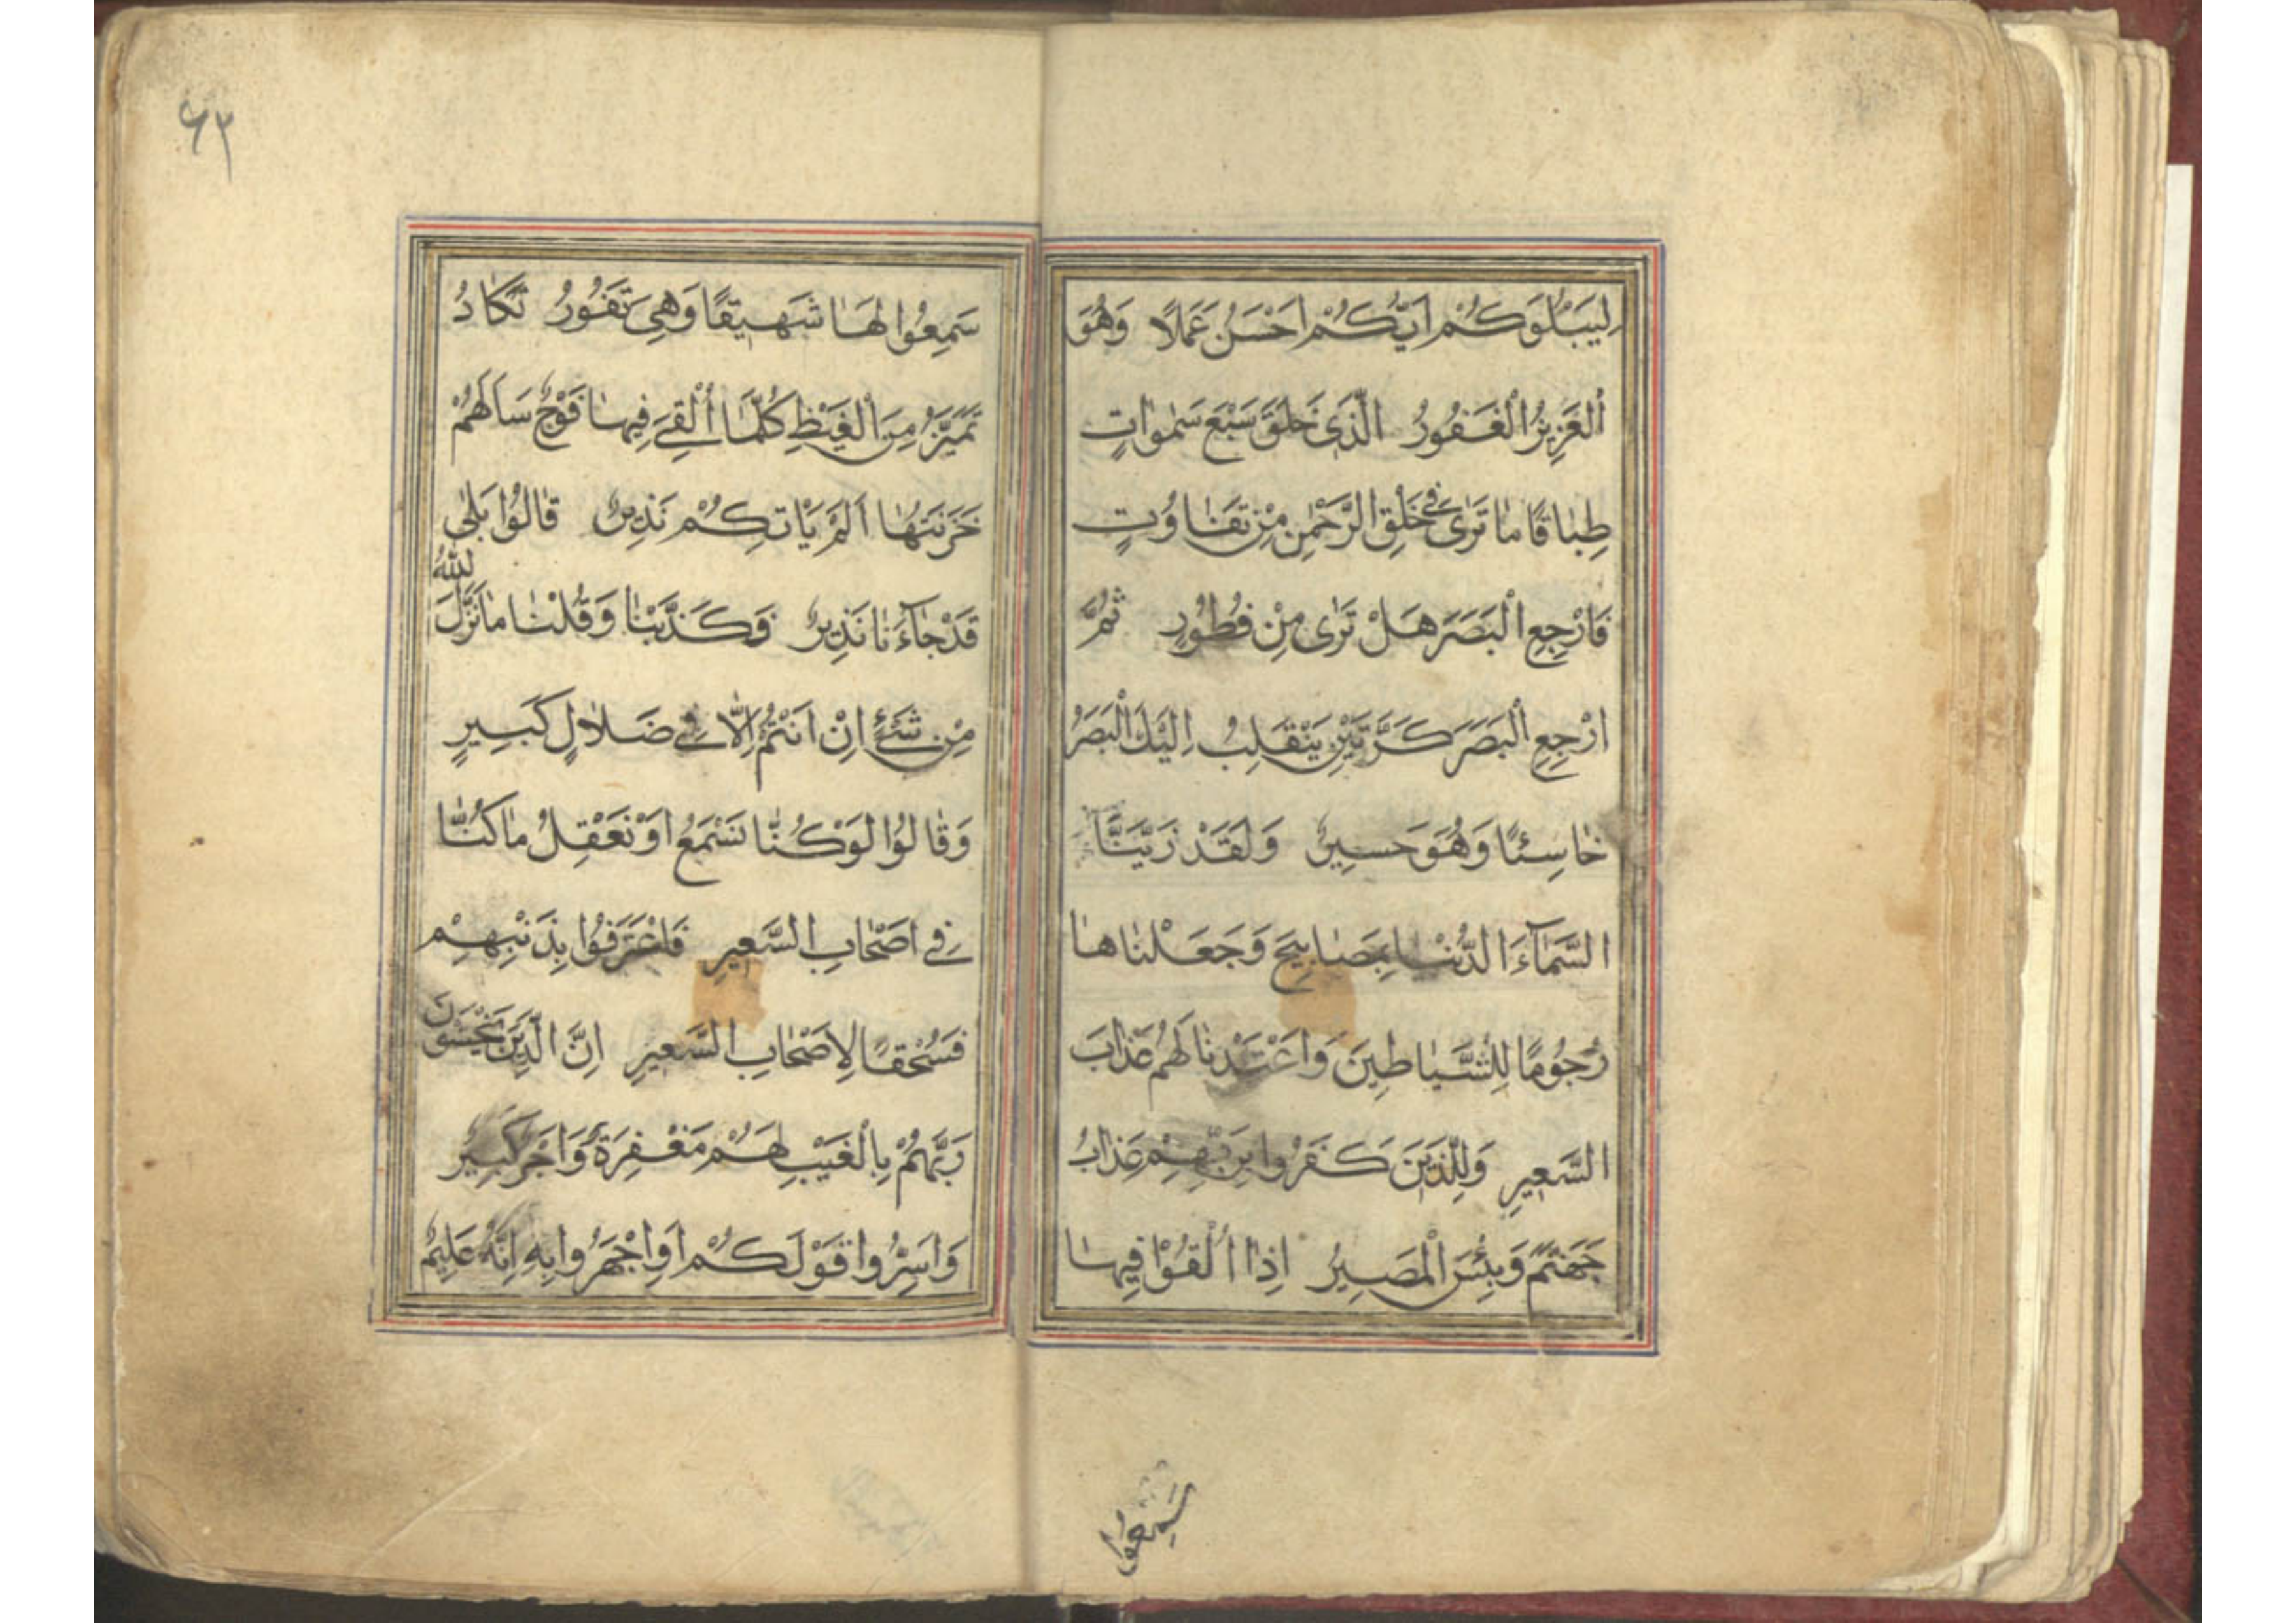 لِيَبْلُوَكُمْ اَيُّكُمْ اَحْسَنُ عَمَلًا وَهُوَ
الْعَزِيزُ الْغَفُورُ الَّذِى خَلَقَ سَبْعَ سَمٰوَاتٍ
طِبَاقًا مَا تَرٰى فِى خَلْقِ الرَّحْمٰنِ مِنْ تَفَاوُتٍ
فَارْجِعِ الْبَصَرَ هَلْ تَرٰى مِنْ فُطُورٍ ثُمَّ
ارْجِعِ الْبَصَرَ كَرَّتَيْنِ يَنْقَلِبْ اِلَيْكَ الْبَصَرُ
خَاسِئًا وَهُوَ حَسِيرٌ وَلَقَدْ زَيَّنَّا
السَّمَآءَ الدُّنْيَا بِمَصَابِيحَ وَجَعَلْنَاهَا
رُجُومًا لِلشَّيَاطِينَ وَاعْتَدْنَا لَهُمْ عَذَابَ
السَّعِيرِ وَلِلَّذِينَ كَفَرُوا بِرَبِّهِمْ عَذَابُ
جَهَنَّمَ وَبِئْسَ الْمَصِيرُ اِذَا اُلْقُوْا فِيهَا
سَمِعُوا
٦٣
سَمِعُوا لَهَا شَهِيقًا وَهِىَ تَفُورُ تَكَادُ
تَمَيَّزُ مِنَ الْغَيْظِ كُلَّمَا اُلْقِىَ فِيهَا فَوْجٌ سَاَلَهُمْ
خَزَنَتُهَا اَلَمْ يَاْتِكُمْ نَذِيرٌ قَالُوا بَلٰى
قَدْ جَآءَنَا نَذِيرٌ فَكَذَّبْنَا وَقُلْنَا مَا نَزَّلَ اللّٰهُ
مِنْ شَىْءٍ اِنْ اَنْتُمْ اِلَّا فِى ضَلَالٍ كَبِيرٍ
وَقَالُوا لَوْ كُنَّا نَسْمَعُ اَوْ نَعْقِلُ مَا كُنَّا
فِى اَصْحَابِ السَّعِيرِ فَاعْتَرَفُوا بِذَنْبِهِمْ
فَسُحْقًا لِاَصْحَابِ السَّعِيرِ اِنَّ الَّذِينَ يَخْشَوْنَ
رَبَّهُمْ بِالْغَيْبِ لَهُمْ مَغْفِرَةٌ وَاَجْرٌ كَبِيرٌ
وَاَسِرُّوا قَوْلَكُمْ اَوِ اجْهَرُوا بِهِ اِنَّهُ عَلِيمٌ